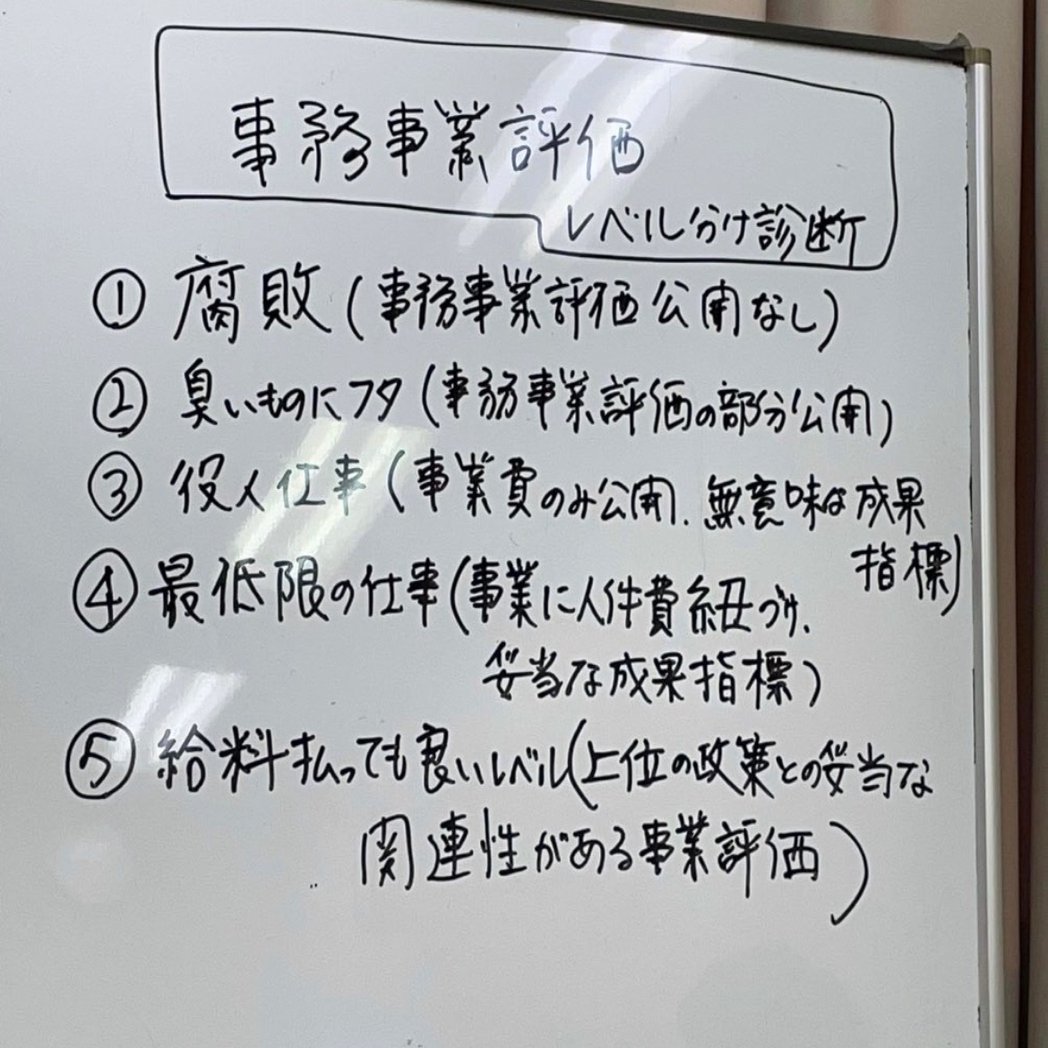 事務事業評価
レベル分け診断
① 腐敗(事務事業評価公開なし)
② 臭いものにフタ(事務事業評価の部分公開)
③ 役人仕事(事業費のみ公開、無意味な成果
指標)
④ 最低限の仕事(事業に人件費紐づけ、
妥当な成果指標)
⑤ 給料払っても良いレベル(上位の政策との妥当な
関連性がある事業評価)